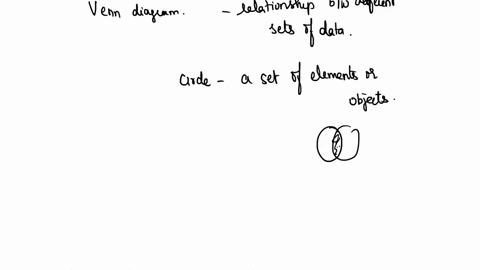 Venn diagram. - relationship b/w different
sets of data.
circle - a set of elements or
objects.